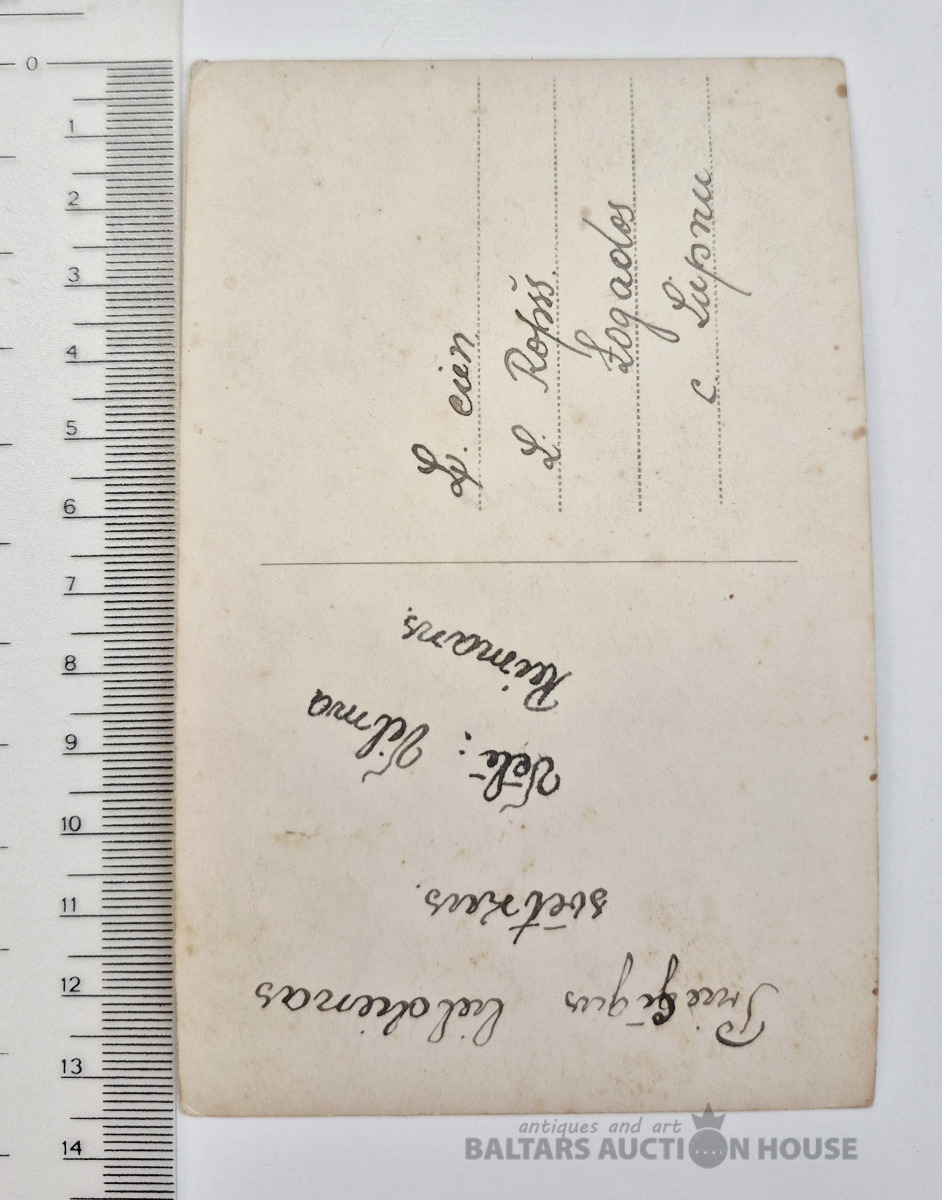 Ļ. cien.
L.
Zogados
c. Liepnu
Priecīgus lieldienas
svētkus.
Vēlē: Vilma
Reimans.
0
1
2
3
4
5
6
7
8
9
10
11
12
13
14
antiques and art
BALTARS AUCTION HOUSE